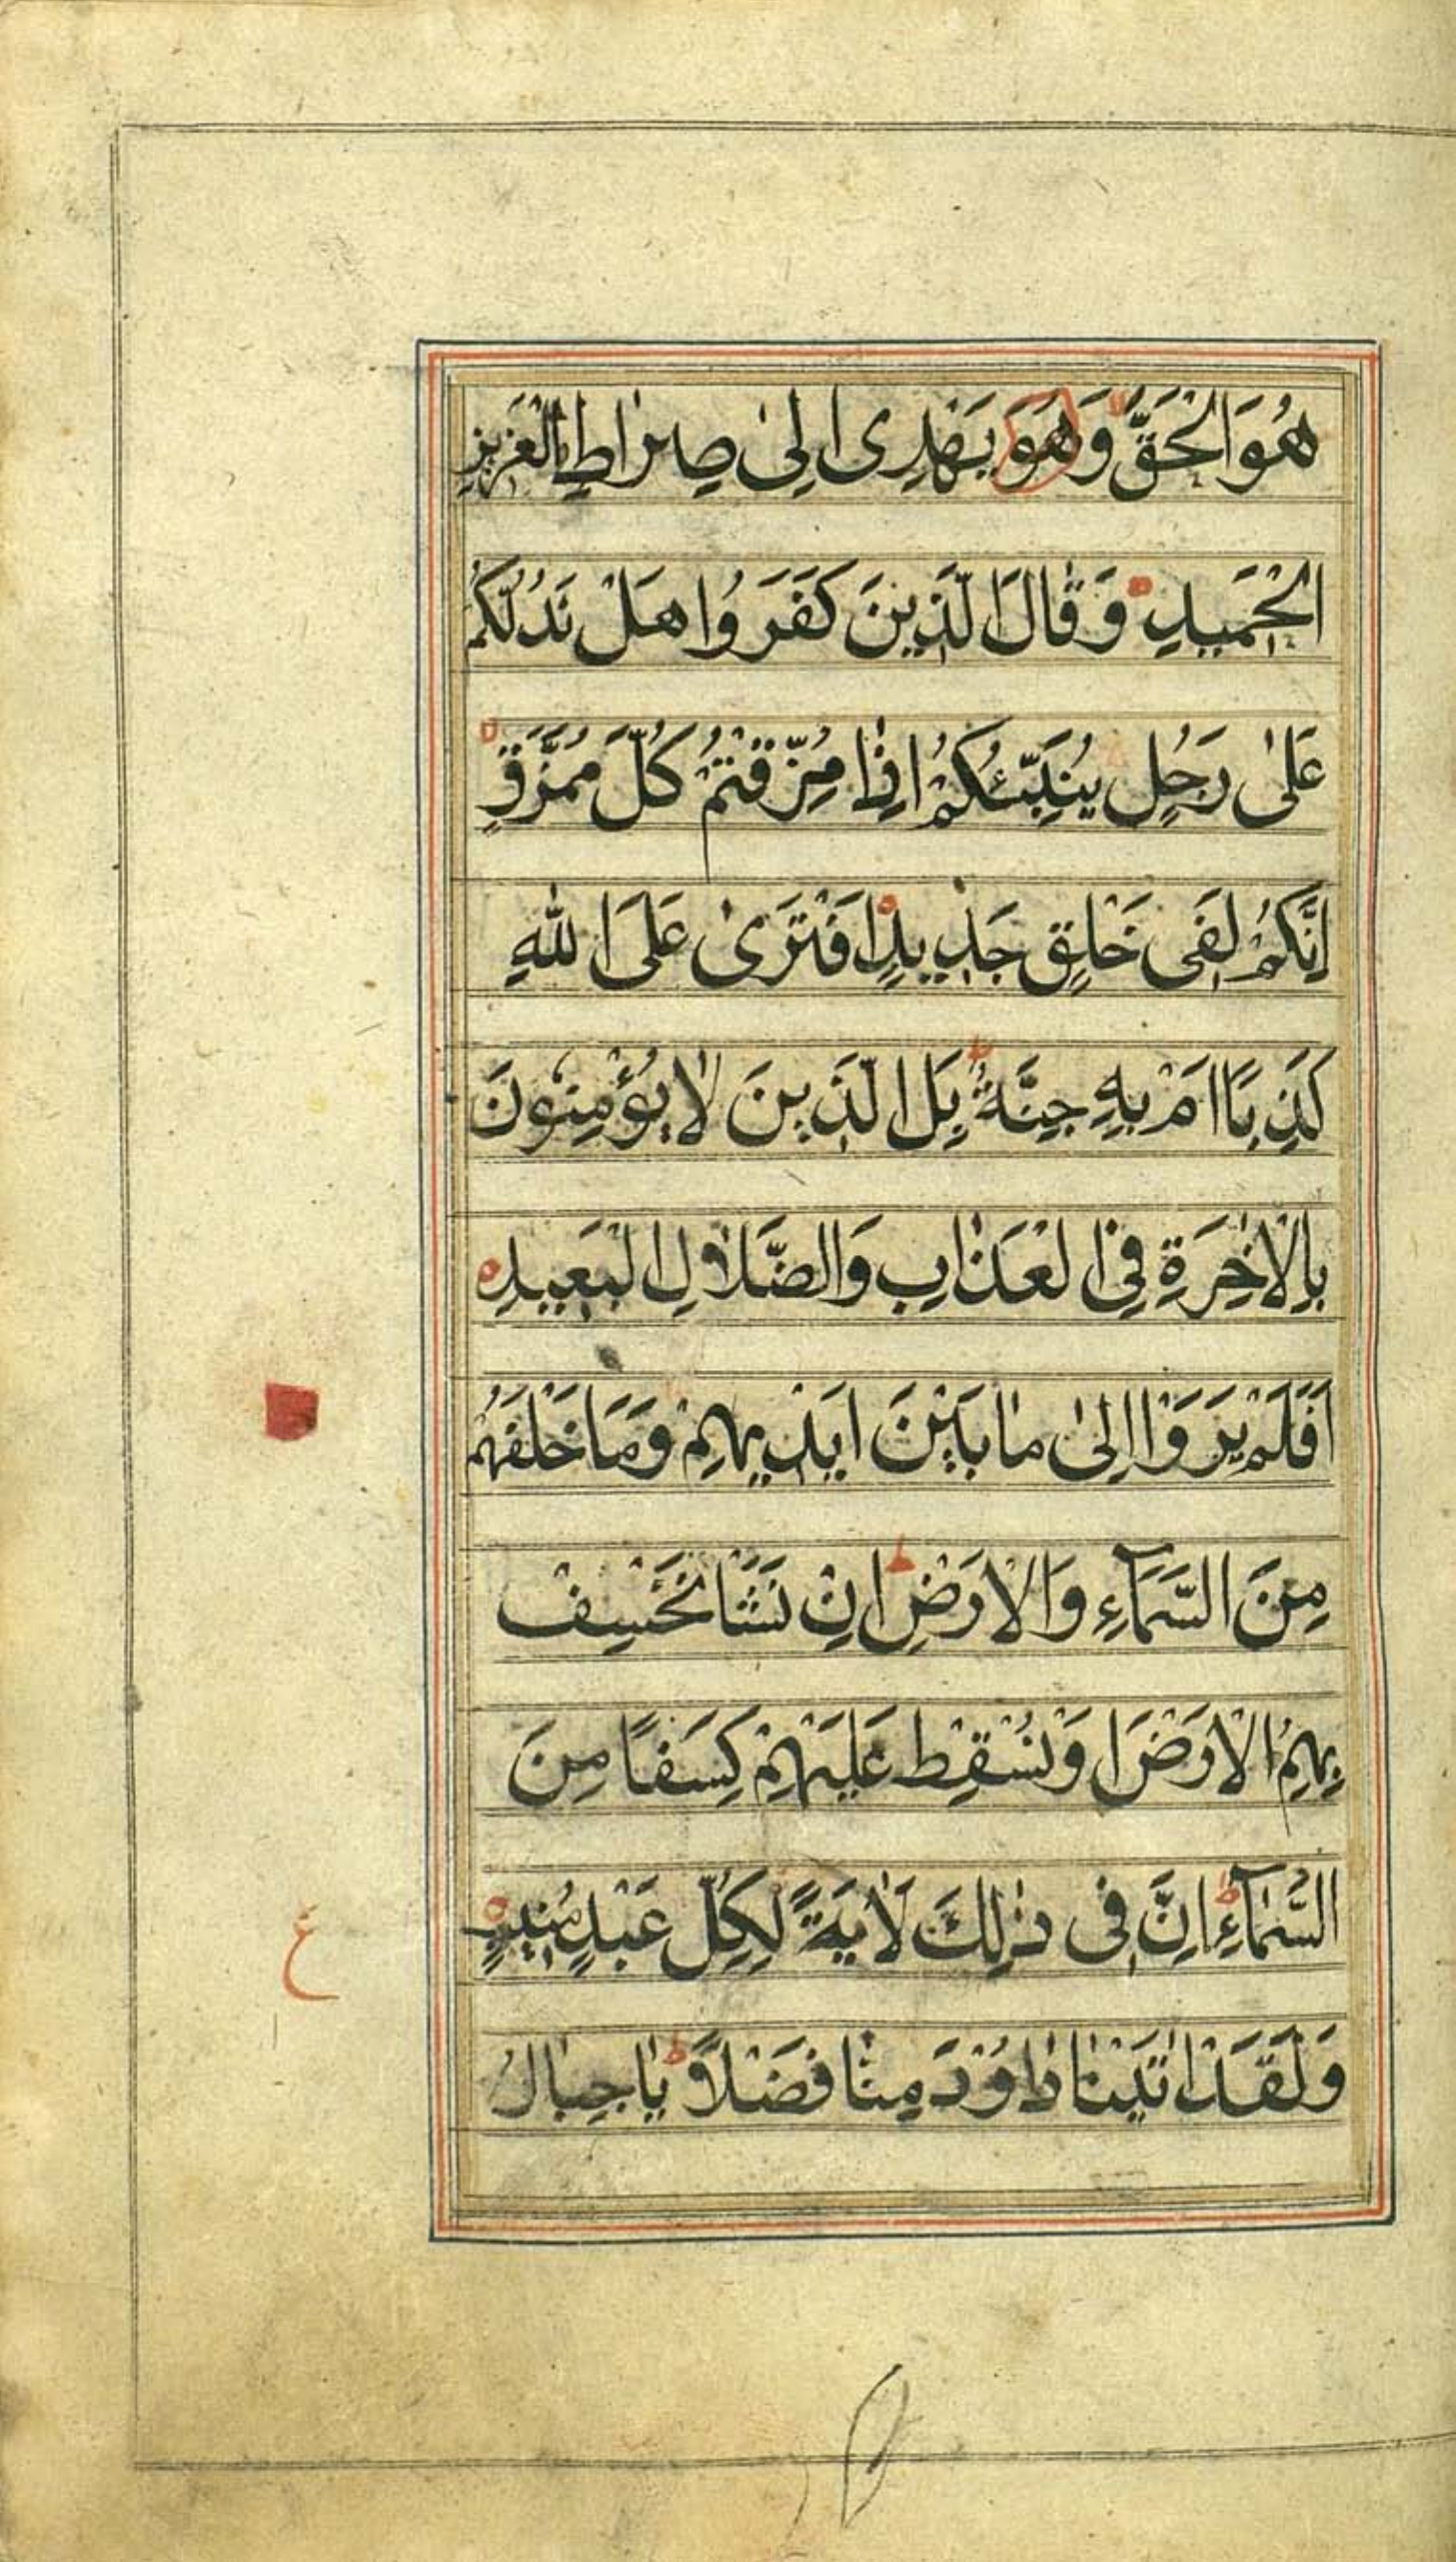 هُوَ الْحَقَّ وَهُوَ يَهْدِى اِلٰى صِرٰاطِ الْعَزِيزِ
الْحَمِيدِ وَ قٰالَ الَّذِينَ كَفَرُوا هَلْ نَدُلُّكُمْ
عَلٰى رَجُلٍ يُنَبِّئُكُمْ اِذٰا مُزِّقْتُمْ كُلَّ مُمَزَّقٍ
اِنَّكُمْ لَفِى خَلْقٍ جَدِيدٍ اَفْتَرٰى عَلَى اللّٰهِ
كَذِبًا اَمْ بِهِ جِنَّةٌ بَلِ الَّذِينَ لاٰ يُؤْمِنُونَ
بِالْاٰخِرَةِ فِى الْعَذٰابِ وَالضَّلاٰلِ الْبَعِيدِ
اَفَلَمْ يَرَوْا اِلٰى مٰا بَيْنَ اَيْدِيهِمْ وَمَا خَلْفَهُمْ
مِنَ السَّمَآءِ وَالْاَرْضِ اِنْ نَشَأْ نَخْسِفْ
بِهِمُ الْاَرْضَ اَوْ نُسْقِطْ عَلَيْهِمْ كِسَفًا مِنَ
السَّمٰآءِ اِنَّ فِى ذٰلِكَ لَاٰيَةً لِكُلِّ عَبْدٍ مُنِيبٍ
وَلَقَدْ اٰتَيْنٰا دٰاوُدَ مِنّٰا فَضْلاً يٰا جِبٰالُ
ع